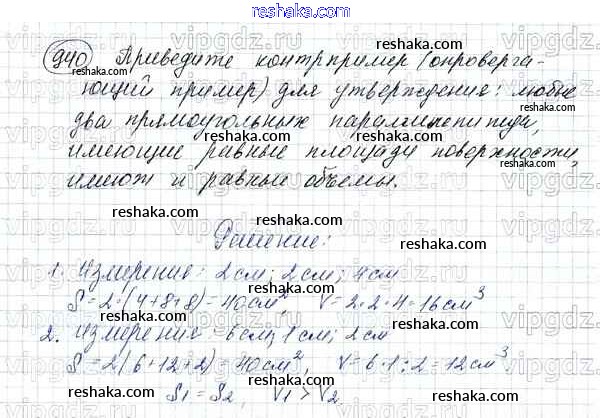 reshaka.com
940 Приведите контрпример (опроверга-
ющий пример) для утверждения: любые
два прямоугольных параллелепипеда,
имеющие равные площади поверхности,
имеют и равные объемы.
Решение:
1. Измерение: 2 см; 2 см; 4 см
S = 2·(4+8+8) = 40 см², V = 2·2·4 = 16 см³
2. Измерение: 6 см; 1 см; 2 см
S = 2(6+12+2) = 40 см², V = 6·1·2 = 12 см³
S₁ = S₂, V₁ > V₂
reshaka.com